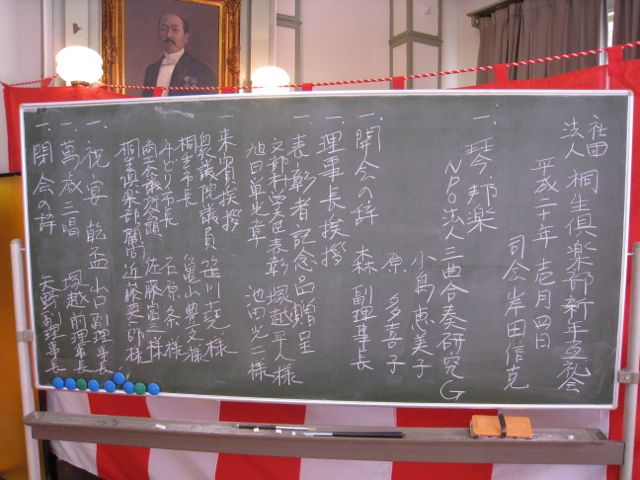 社団法人 桐生倶楽部新年互礼会
平成二十年 壱月四日
司会 岸田信克
一、琴、邦楽
NPO法人三曲合奏研究G
小島恵美子
原 多喜子
一、開会の辞 森 副理事長
一、理事長挨拶
一、表彰者記念品贈呈
文部科学大臣表彰 塚越平人様
旭日単光章 池田光二様
一、来賓挨拶
衆議院議員 笹川堯様
桐生市長 亀山豊文様
みどり市長 石原条様
商工会議所会頭 佐藤富三様
桐生倶楽部顧問 近藤英一郎様
一、祝宴 乾盃 小口副理事長
一、萬歳三唱 塚越前理事長
一、閉会の辞 矢野副理事長